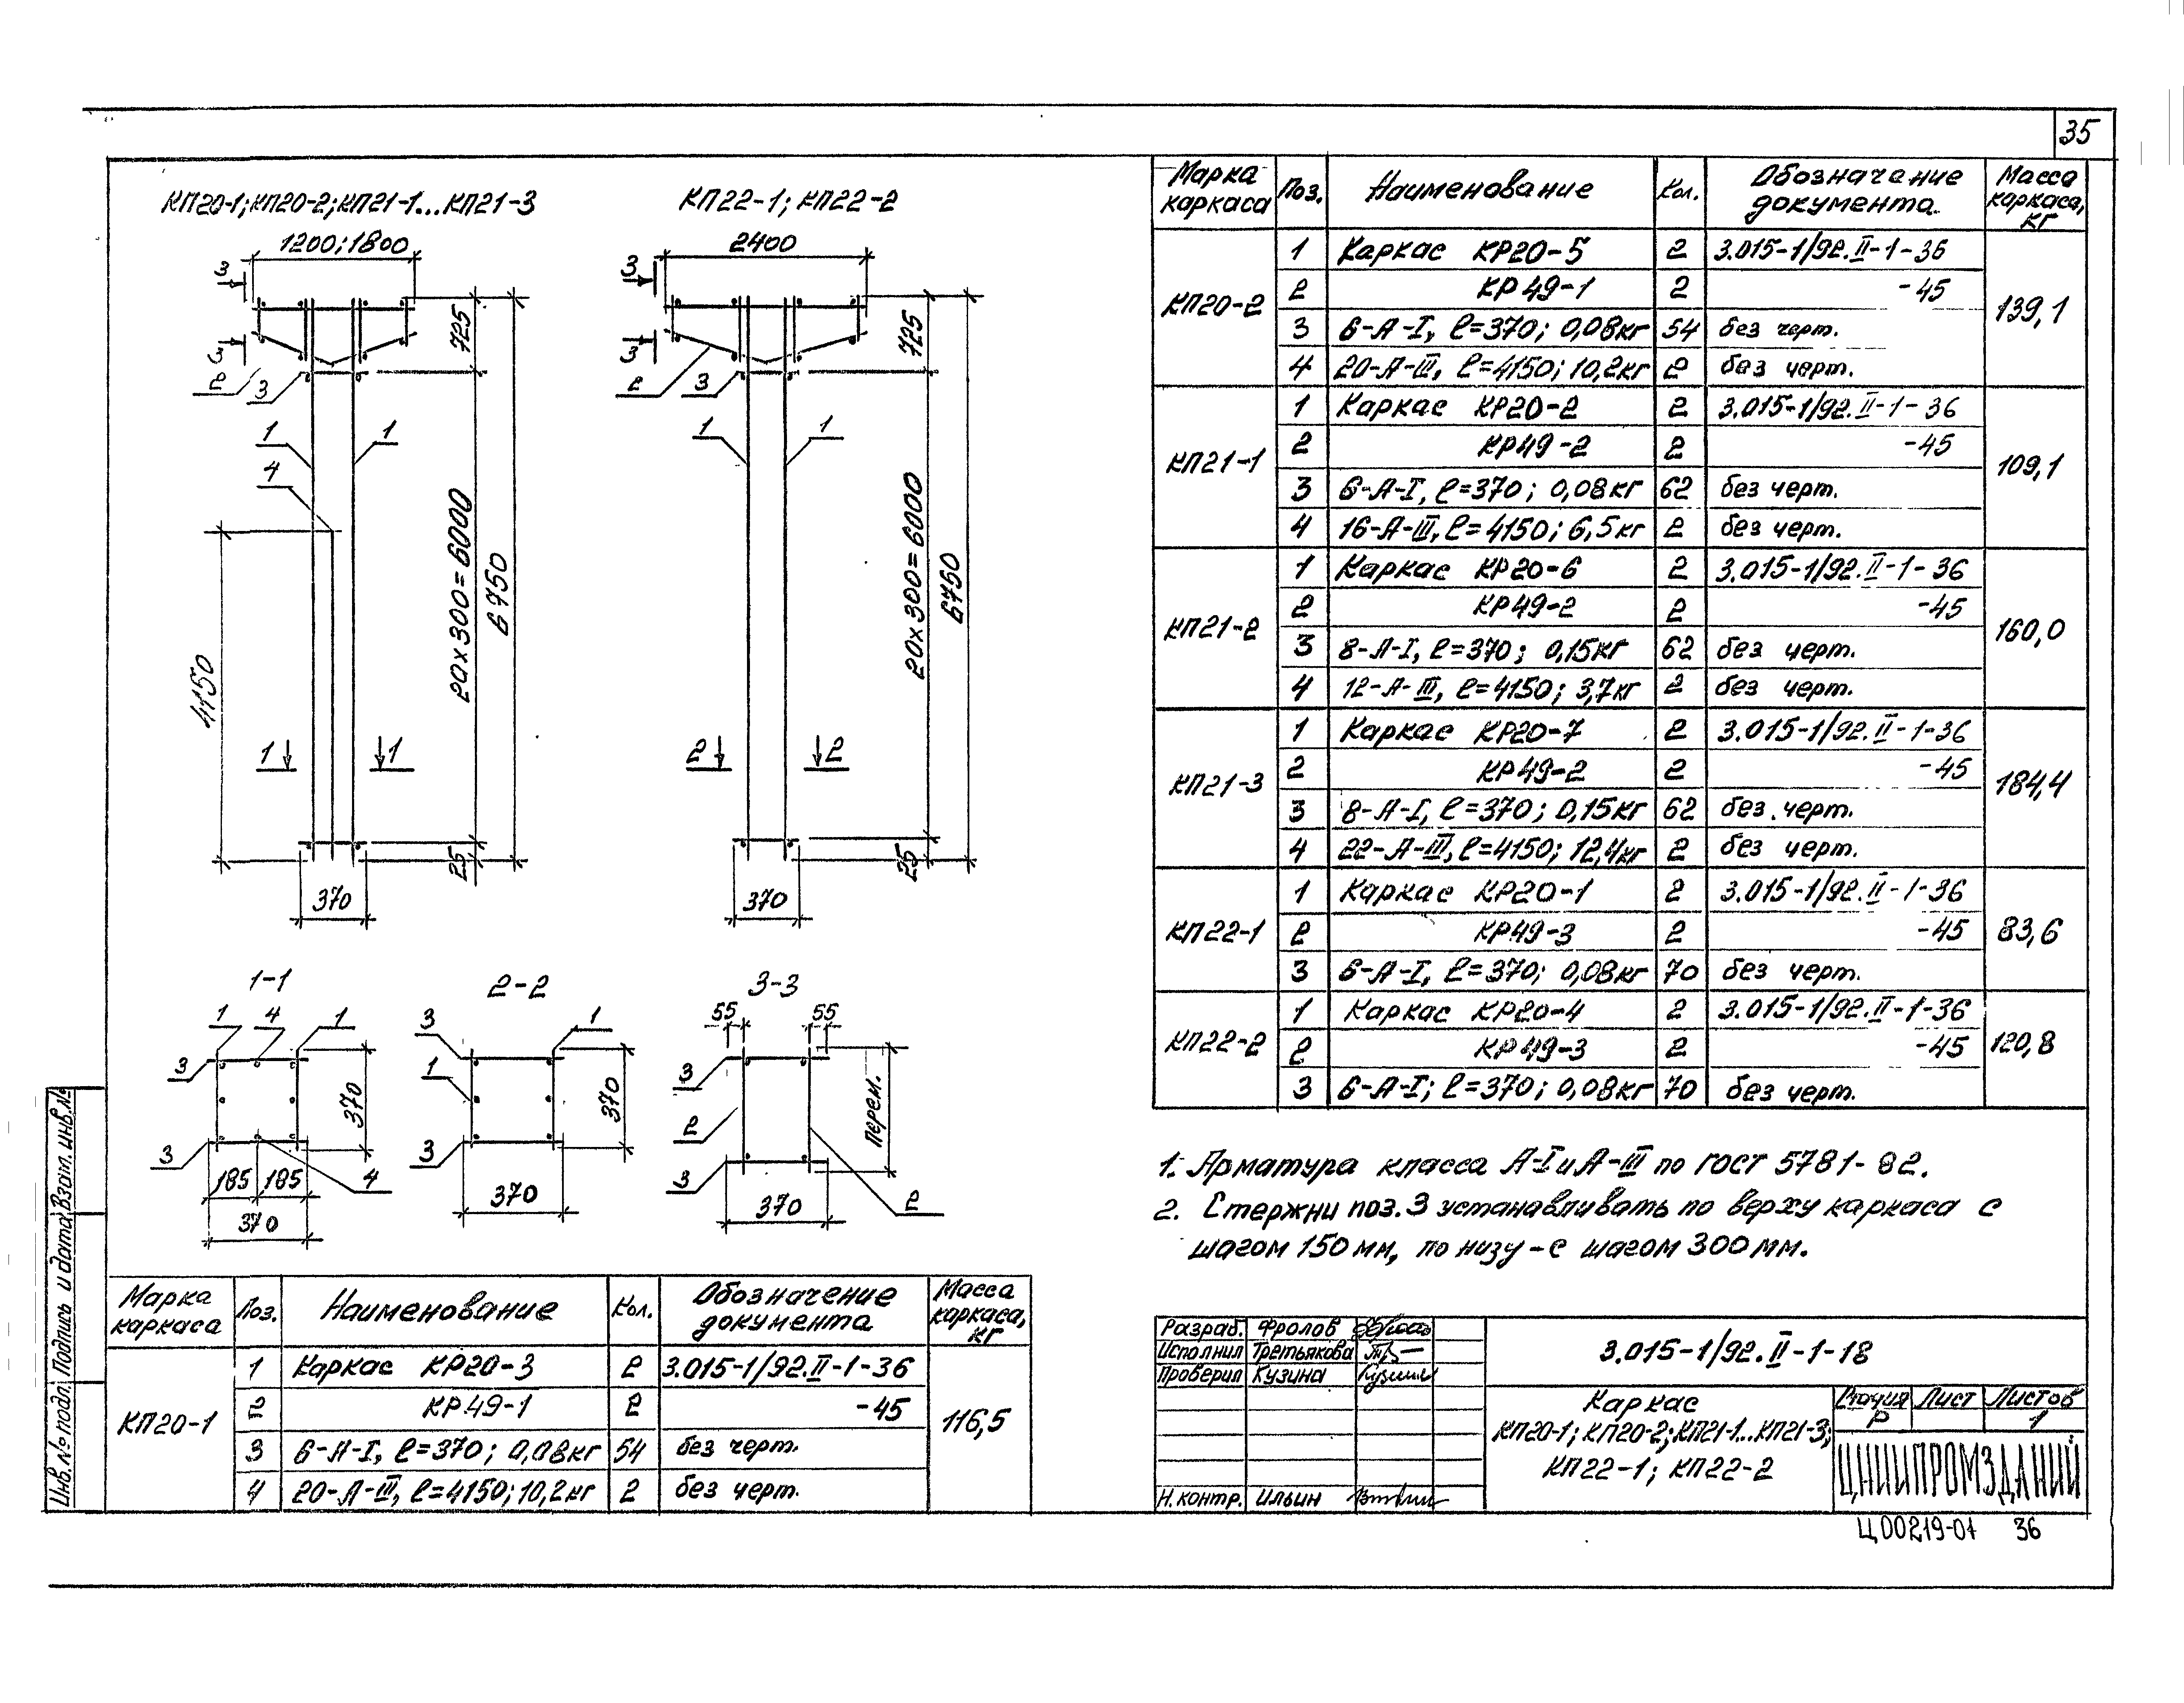 35
КП20-1; КП20-2; КП21-1...КП21-3
1200; 1800
3
3
2
3
1
1
4
725
20х300=6000
6750
4150
1
1
25
370
КП22-1; КП22-2
2400
3
3
2
3
1
1
725
20х300=6000
6750
2
2
25
370
1-1
1
4
1
3
3
370
185
185
4
370
2-2
3
1
1
3
370
370
3-3
55
55
3
2
3
Перем.
370
2
Марка каркаса
Поз.
Наименование
Кол.
Обозначение документа
Масса каркаса, кг
КП20-1
1 Каркас КР20-3 2 3.015-1/92.II-1-36
2 КР49-1 2 -45
3 6-А-I, ℓ=370; 0,08кг 54 без черт.
4 20-А-III, ℓ=4150; 10,2кг 2 без черт.
116,5
Марка каркаса
Поз.
Наименование
Кол.
Обозначение документа
Масса каркаса, кг
КП20-2
1 Каркас КР20-5 2 3.015-1/92.II-1-36
2 КР49-1 2 -45
3 6-А-I, ℓ=370; 0,08кг 54 без черт.
4 20-А-III, ℓ=4150; 10,2кг 2 без черт.
139,1
КП21-1
1 Каркас КР20-2 2 3.015-1/92.II-1-36
2 КР49-2 2 -45
3 6-А-I, ℓ=370; 0,08кг 62 без черт.
4 16-А-III, ℓ=4150; 6,5кг 2 без черт.
109,1
КП21-2
1 Каркас КР20-6 2 3.015-1/92.II-1-36
2 КР49-2 2 -45
3 8-А-I, ℓ=370; 0,15кг 62 без черт.
4 12-А-III, ℓ=4150; 3,7кг 2 без черт.
160,0
КП21-3
1 Каркас КР20-7 2 3.015-1/92.II-1-36
2 КР49-2 2 -45
3 8-А-I, ℓ=370; 0,15кг 62 без черт.
4 22-А-III, ℓ=4150; 12,4кг 2 без черт.
184,4
КП22-1
1 Каркас КР20-1 2 3.015-1/92.II-1-36
2 КР49-3 2 -45
3 6-А-I, ℓ=370; 0,08кг 70 без черт.
83,6
КП22-2
1 Каркас КР20-4 2 3.015-1/92.II-1-36
2 КР49-3 2 -45
3 6-А-I; ℓ=370; 0,08кг 70 без черт.
120,8
1. Арматура класса А-I и А-III по ГОСТ 5781-82.
2. Стержни поз. 3 устанавливать по верху каркаса с
шагом 150 мм, по низу - с шагом 300 мм.
Разраб. Фролов
Исполнил Третьякова
Проверил Кузина
Н. контр. Ильин
3.015-1/92.II-1-18
Каркас
КП20-1; КП20-2; КП21-1...КП21-3;
КП22-1; КП22-2
Стадия Лист Листов
Р 1
ЦНИИПРОМЗДАНИЙ
Ц00219-01 36
Инв. № подл. Подпись и дата Взам. инв. №